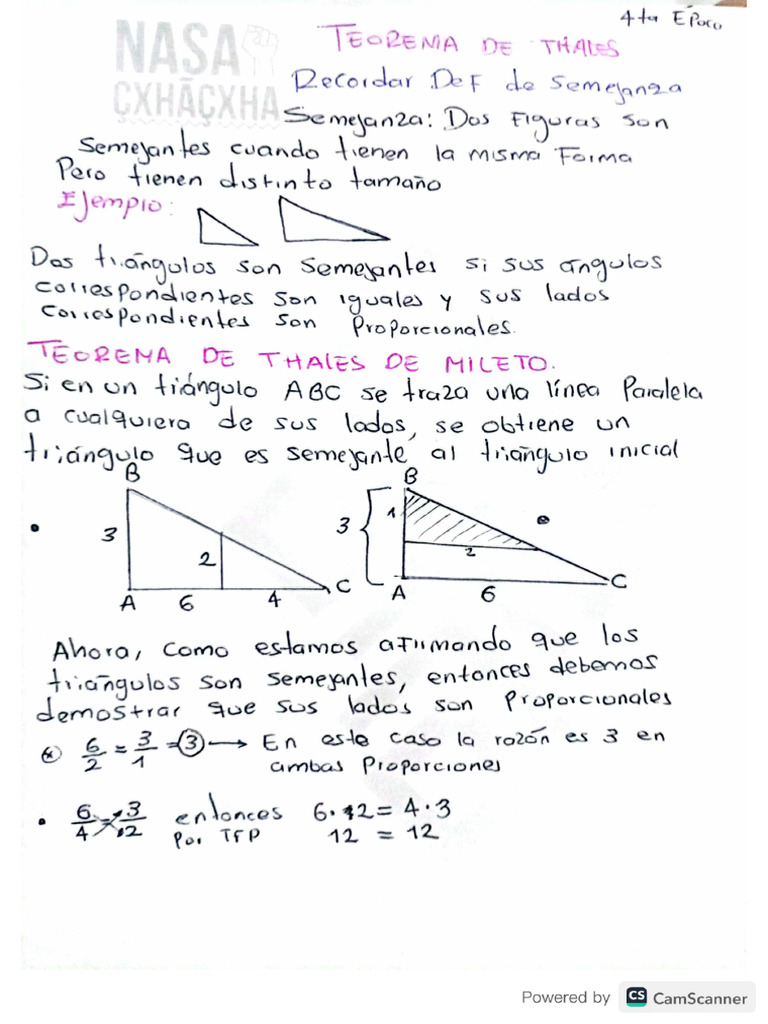 4ta Época
NASA
CXHÃÇXHA
TEOREMA DE THALES
Recordar DeF de semejanza
Semejanza: Dos Figuras son
Semejantes cuando tienen la misma Forma
Pero tienen distinto tamaño
Ejemplo:
Dos triángulos son semejantes si sus angulos
correspondientes son iguales y sus lados
Correspondientes son Proporcionales.
TEOREMA DE THALES DE MILETO.
Si en un triángulo ABC se traza una línea Paralela
a cualquiera de sus lados, se obtiene un
triángulo que es semejante al triángulo inicial
B
3
2
A 6 4 C
B
3 1
2
A 6 C
Ahora, como estamos afirmando que los
triangulos son semejantes, entonces debemos
demostrar que sus lados son Proporcionales
6/2 = 3/1 = 3 → En este caso la razón es 3 en
ambas Proporciones
• 6/4 = 3/2 entonces 6·2 = 4·3
Por TFP 12 = 12
Powered by CS CamScanner